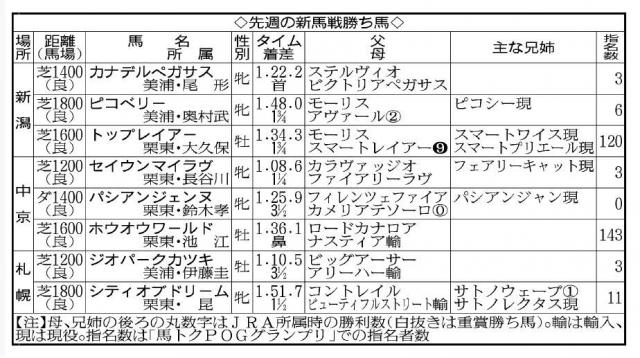 ◇先週の新馬戦勝ち馬◇
場所 距離(馬場) 馬名 所属 性別 タイム 着差 父 母 主な兄姉 指名数
新潟
芝1400 カナデルペガサス 牝 1.22.2 ステルヴィオ 3
(良) 美浦・尾形 首 ビクトリアペガサス
芝1800 ピコベリー 牝 1.48.0 モーリス ピコシー現 6
(良) 美浦・奥村武 1¾ アヴァール②
芝1600 トップレイアー 牡 1.34.3 モーリス スマートワイス現 120
(良) 栗東・大久保 1¾ スマートレイアー❾ スマートプリエール現
中京
芝1200 セイウンマイラヴ 牝 1.08.6 カラヴァッジオ フェアリーキャット現 3
(良) 栗東・長谷川 1¼ ファイアリーラヴ
ダ1400 パシアンジェンヌ 牝 1.25.9 フィレンツェファイア パシアンジャン現 0
(良) 栗東・鈴木孝 3½ カメリアテソーロ⓪
芝1600 ホウオウワールド 牡 1.36.1 ロードカナロア 143
(良) 栗東・池江 鼻 ナスティア輸
札幌
芝1200 ジオパークカツキ 牝 1.10.5 ビッグアーサー 3
(良) 美浦・伊藤圭 3½ アリーハー輸
芝1800 シティオブドリーム 牝 1.51.7 コントレイル サトノウェーブ① 11
(良) 栗東・昆 1½ ビューティフルストリート輸 サトノレクタス現
【注】母、兄姉の後ろの丸数字はJRA所属時の勝利数(白抜きは重賞勝ち馬)。輸は輸入、
現は現役。指名数は「馬トクPOGグランプリ」での指名者数